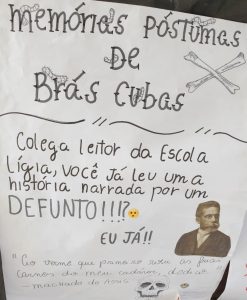 Memórias Póstumas
DE
Brás Cubas
Colega leitor da Escola
Lígia, você já leu uma
história narrada por um
DEFUNTO!!!?
EU JÁ!!
"Ao verme que primeiro roeu as frias
carnes do meu cadáver, dedico"
-machado de Assis